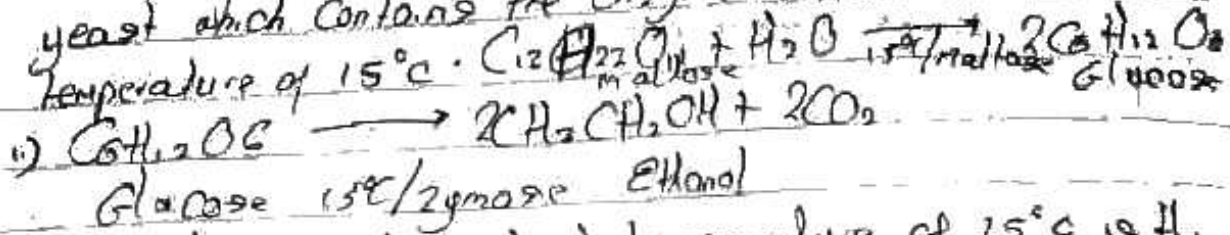 yeast which contains the
temperature of 15°C. C12H22O11 + H2O → 2C6H12O6
Maltose 15°C/Maltase Glucose
ii) C6H12O6 → 2CH3CH2OH + 2CO2
Glucose 15°C/Zymase Ethanol
of 15°C is